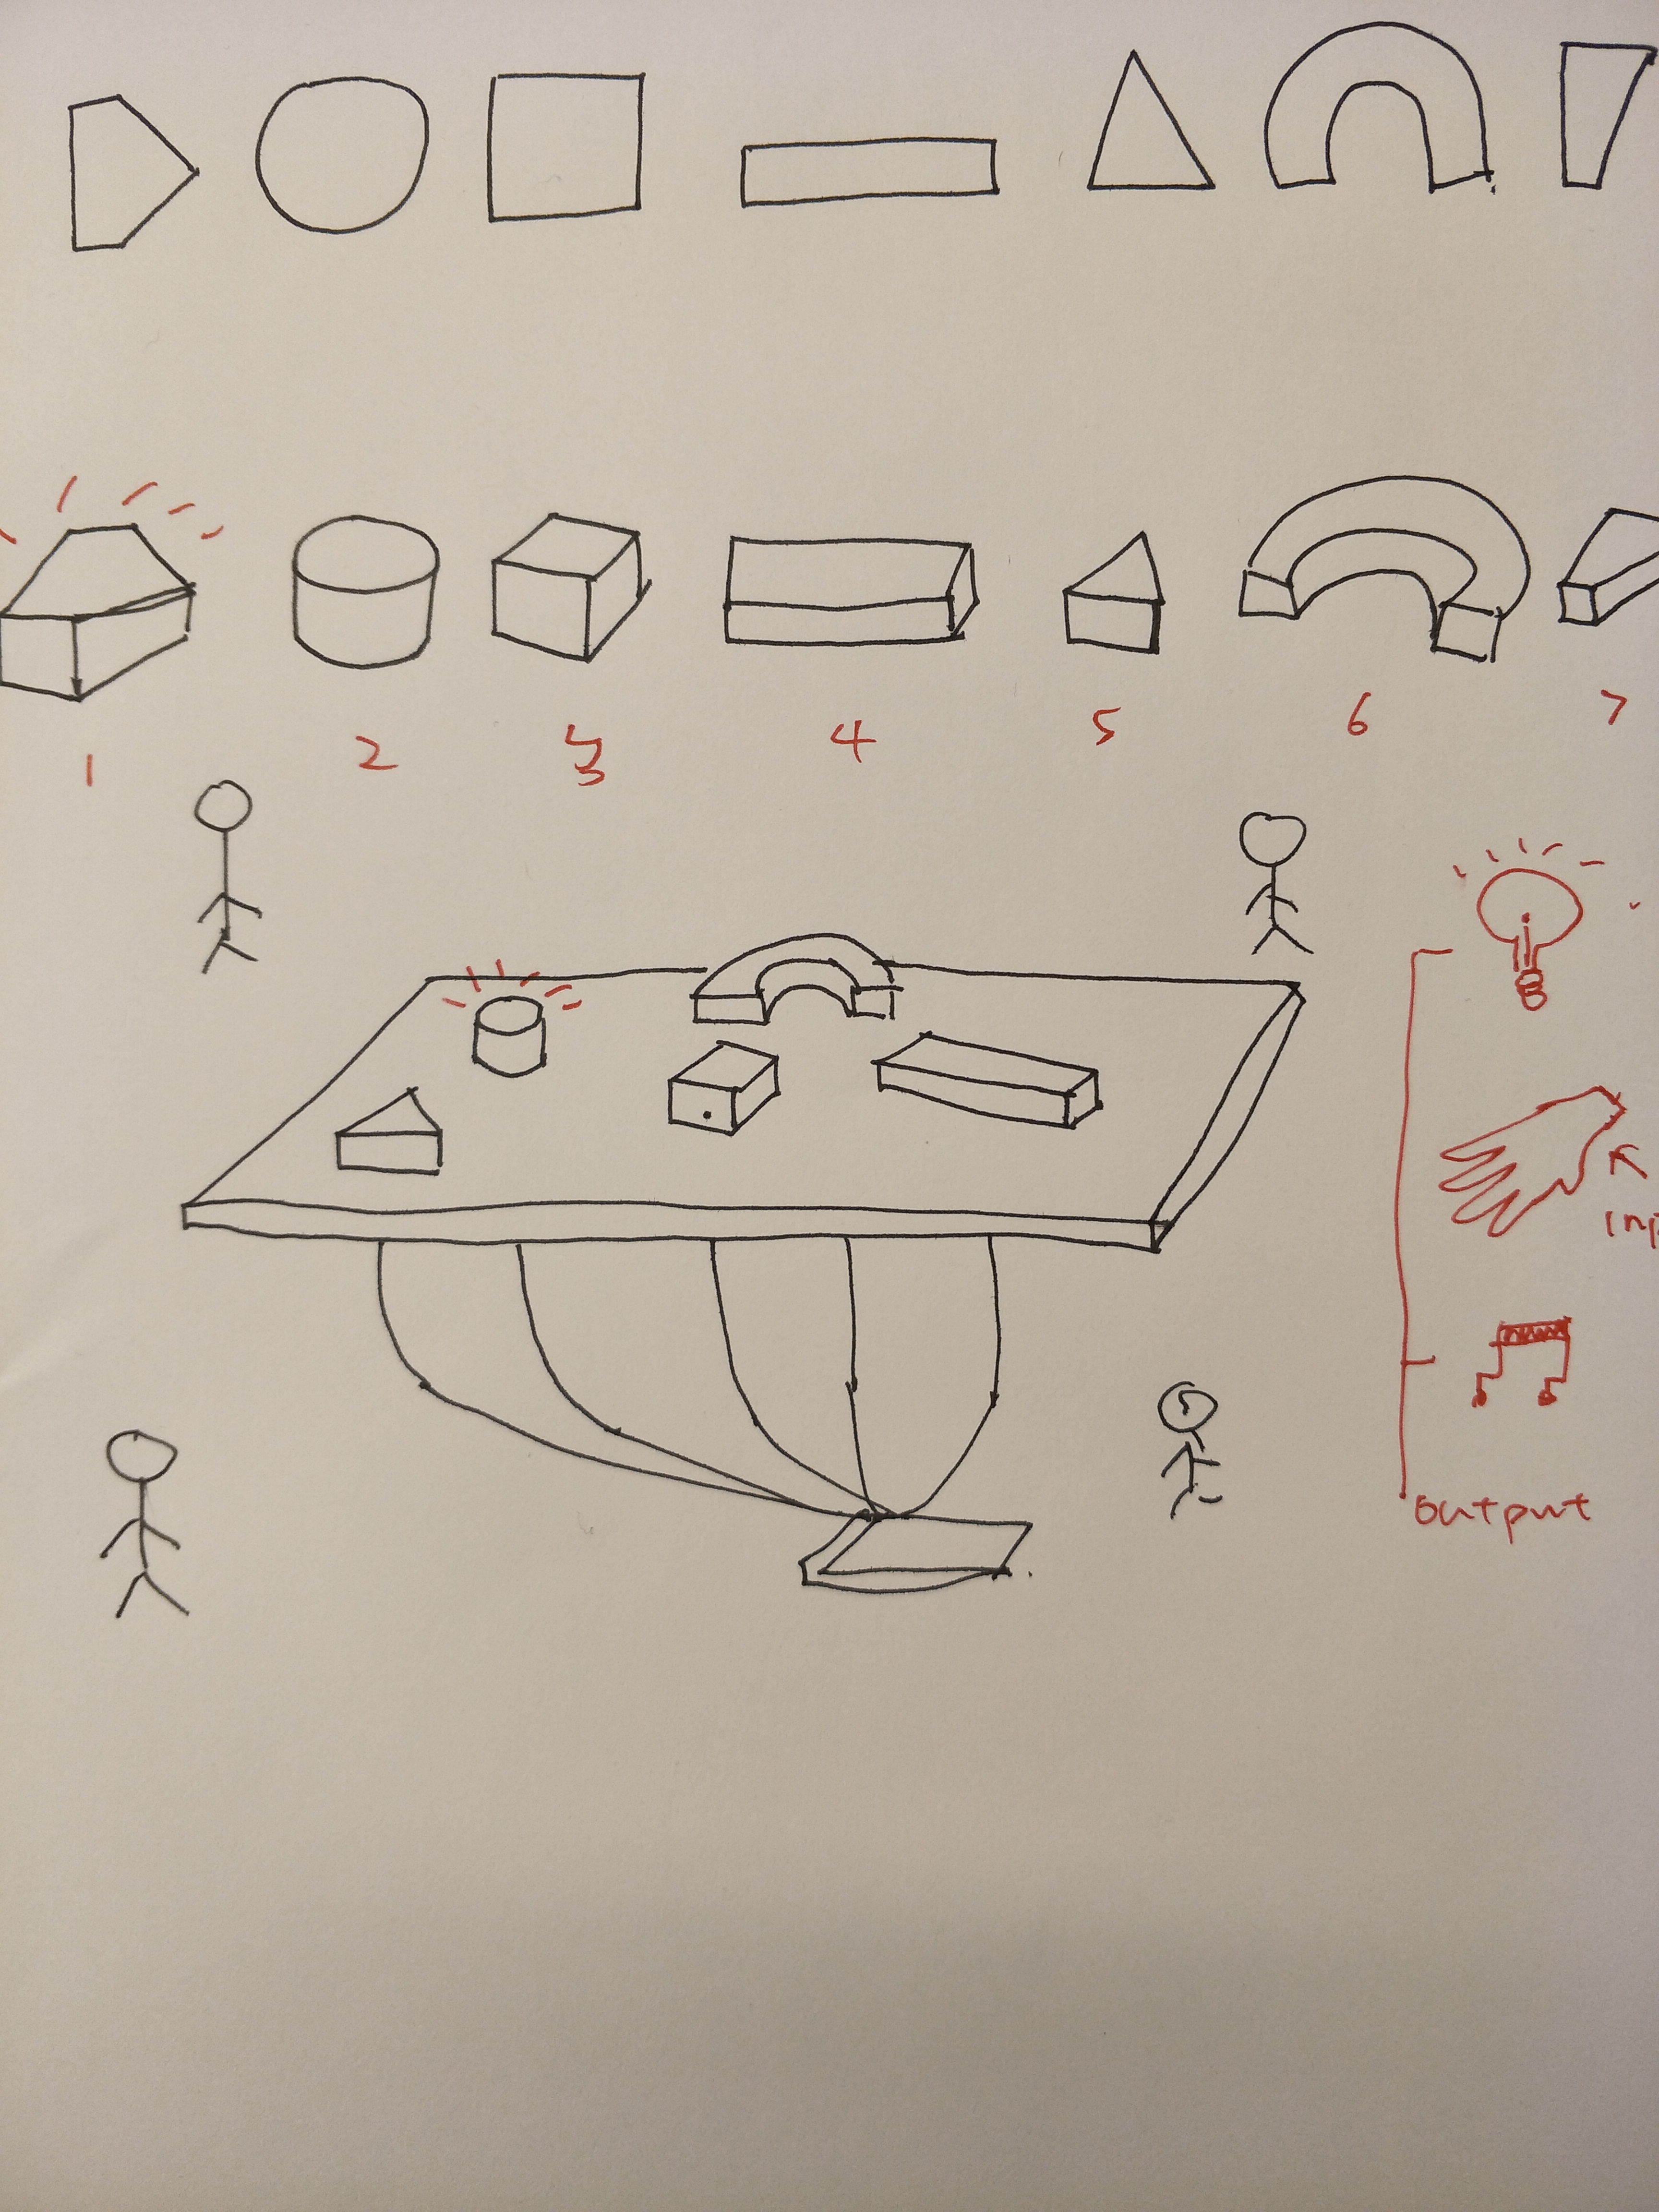 1 2 3 4 5 6 7
output